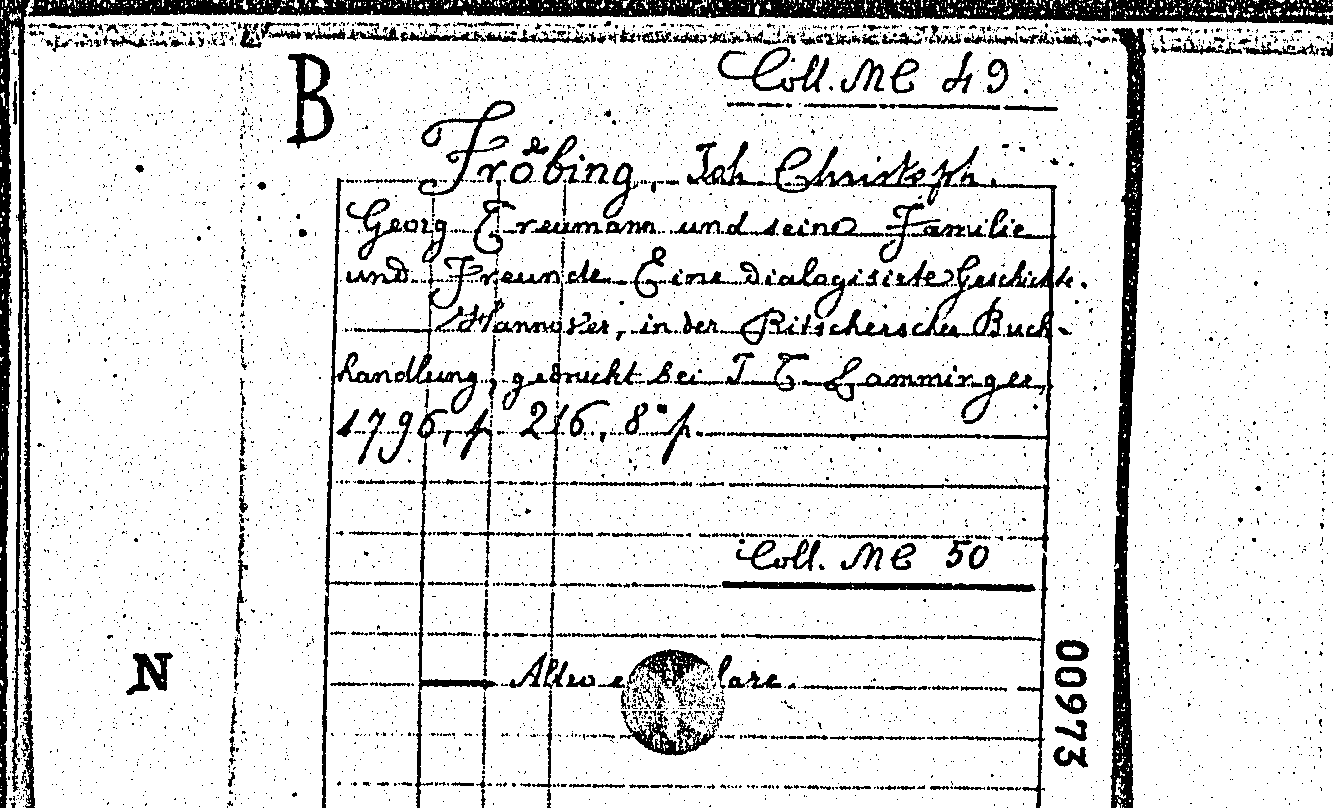 B
Coll. MC 49.
Fröbing, Joh Christoph.
Georg Treumann und seine Familie
und Freunde. Eine dialogisirte Geschichte.
Hannover, in der Ritscherschen Buch-
handlung, gedruckt bei J. T. Lamminger,
1796, p. 216, 8° p.
Coll. MC 50
N
Altro
00973